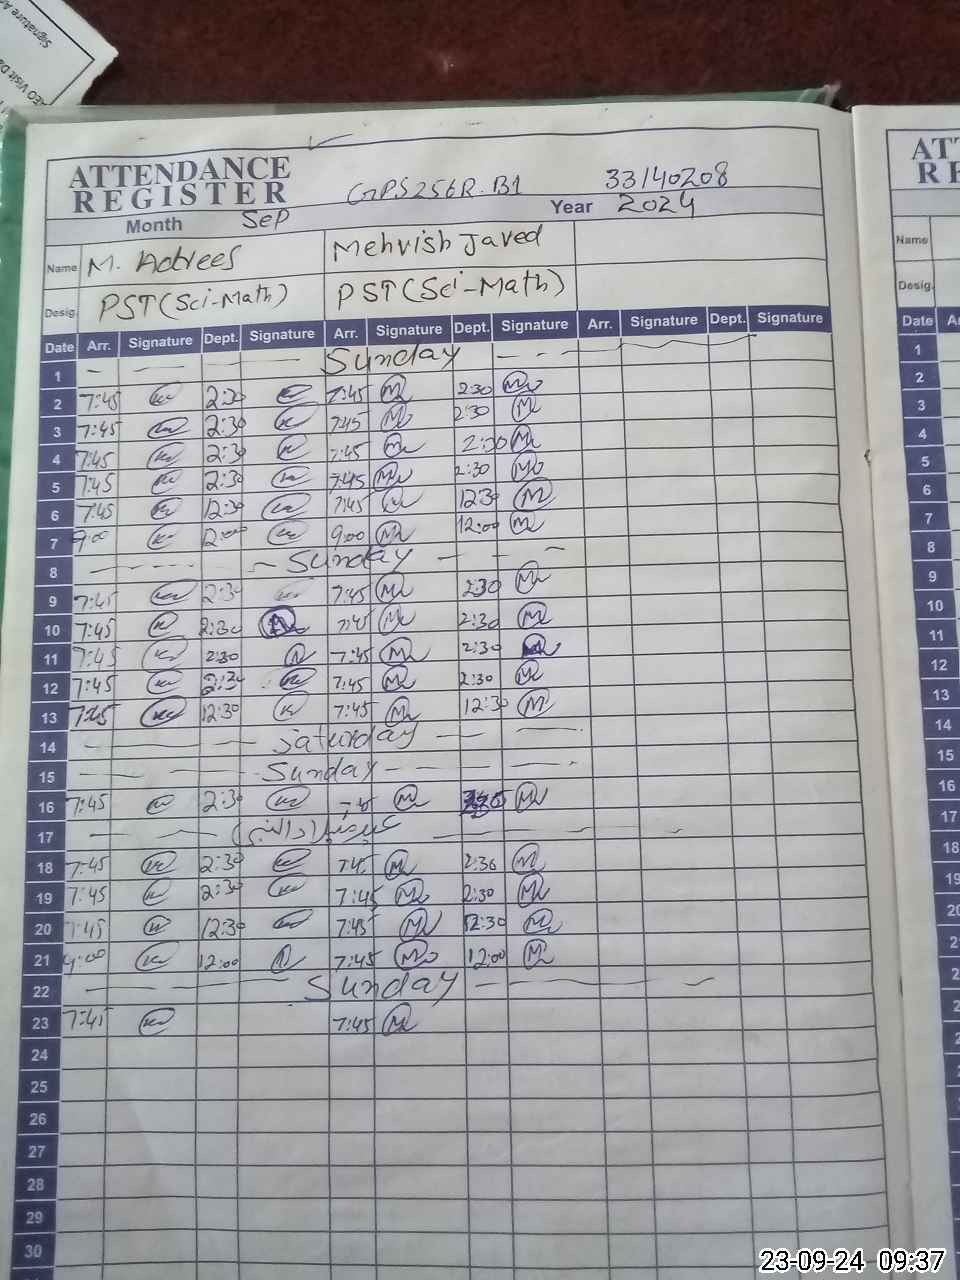 Signature
AEO Visit Da
ATTENDANCE
REGISTER
GPS256R.B1 33140208
Month Sep Year 2024
Name M. Adrees Mehvish Javed
Desig. PST(Sci-Math) PST(Sci-Math)
Date Arr. Signature Dept. Signature Arr. Signature Dept. Signature Arr. Signature Dept. Signature
1 Sunday
2 7:45 2:30 7:45 2:30
3 7:45 2:30 7:45 2:30
4 7:45 2:30 7:45 2:30
5 7:45 2:30 7:45 2:30
6 7:45 12:30 7:45 12:30
7 9:00 12:00 9:00 12:00
8 Sunday
9 7:45 2:30 7:45 2:30
10 7:45 2:30 7:45 2:30
11 7:45 2:30 7:45 2:30
12 7:45 2:30 7:45 2:30
13 7:45 12:30 7:45 12:30
14 Saturday
15 Sunday
16 7:45 2:30 7:45
17
18 7:45 2:30 7:45 2:30
19 7:45 2:30 7:45 2:30
20 7:45 12:30 7:45 12:30
21 9:00 12:00 7:45 12:00
22 Sunday
23 7:45 7:45
24
25
26
27
28
29
30
AT
RE
Name
Desig.
Date
1
2
3
4
5
6
7
8
9
10
11
12
13
14
15
16
17
18
19
20
23-09-24 09:37